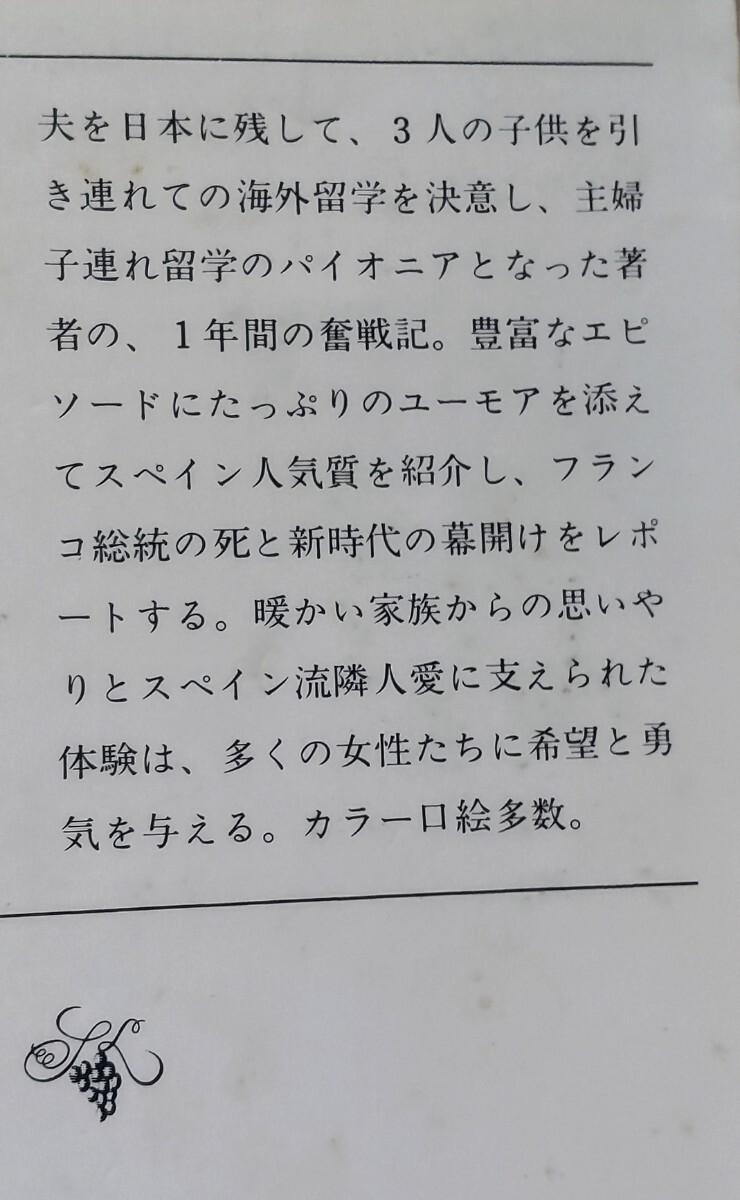 夫を日本に残して、3人の子供を引
き連れての海外留学を決意し、主婦
子連れ留学のパイオニアとなった著
者の、1年間の奮戦記。豊富なエピ
ソードにたっぷりのユーモアを添え
てスペイン人気質を紹介し、フラン
コ総統の死と新時代の幕開けをレポ
ートする。暖かい家族からの思いや
りとスペイン流隣人愛に支えられた
体験は、多くの女性たちに希望と勇
気を与える。カラー口絵多数。